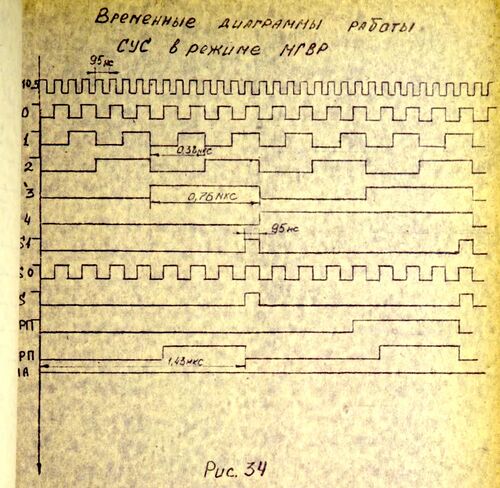 Временные диаграммы работы
СУС в режиме МГВР
95нс
10,5
0
1
0,38мкс
2
3
0,76мкс
4
95нс
S1
S0
S
РП
РП
1,43мкс
1А
Рис. 34